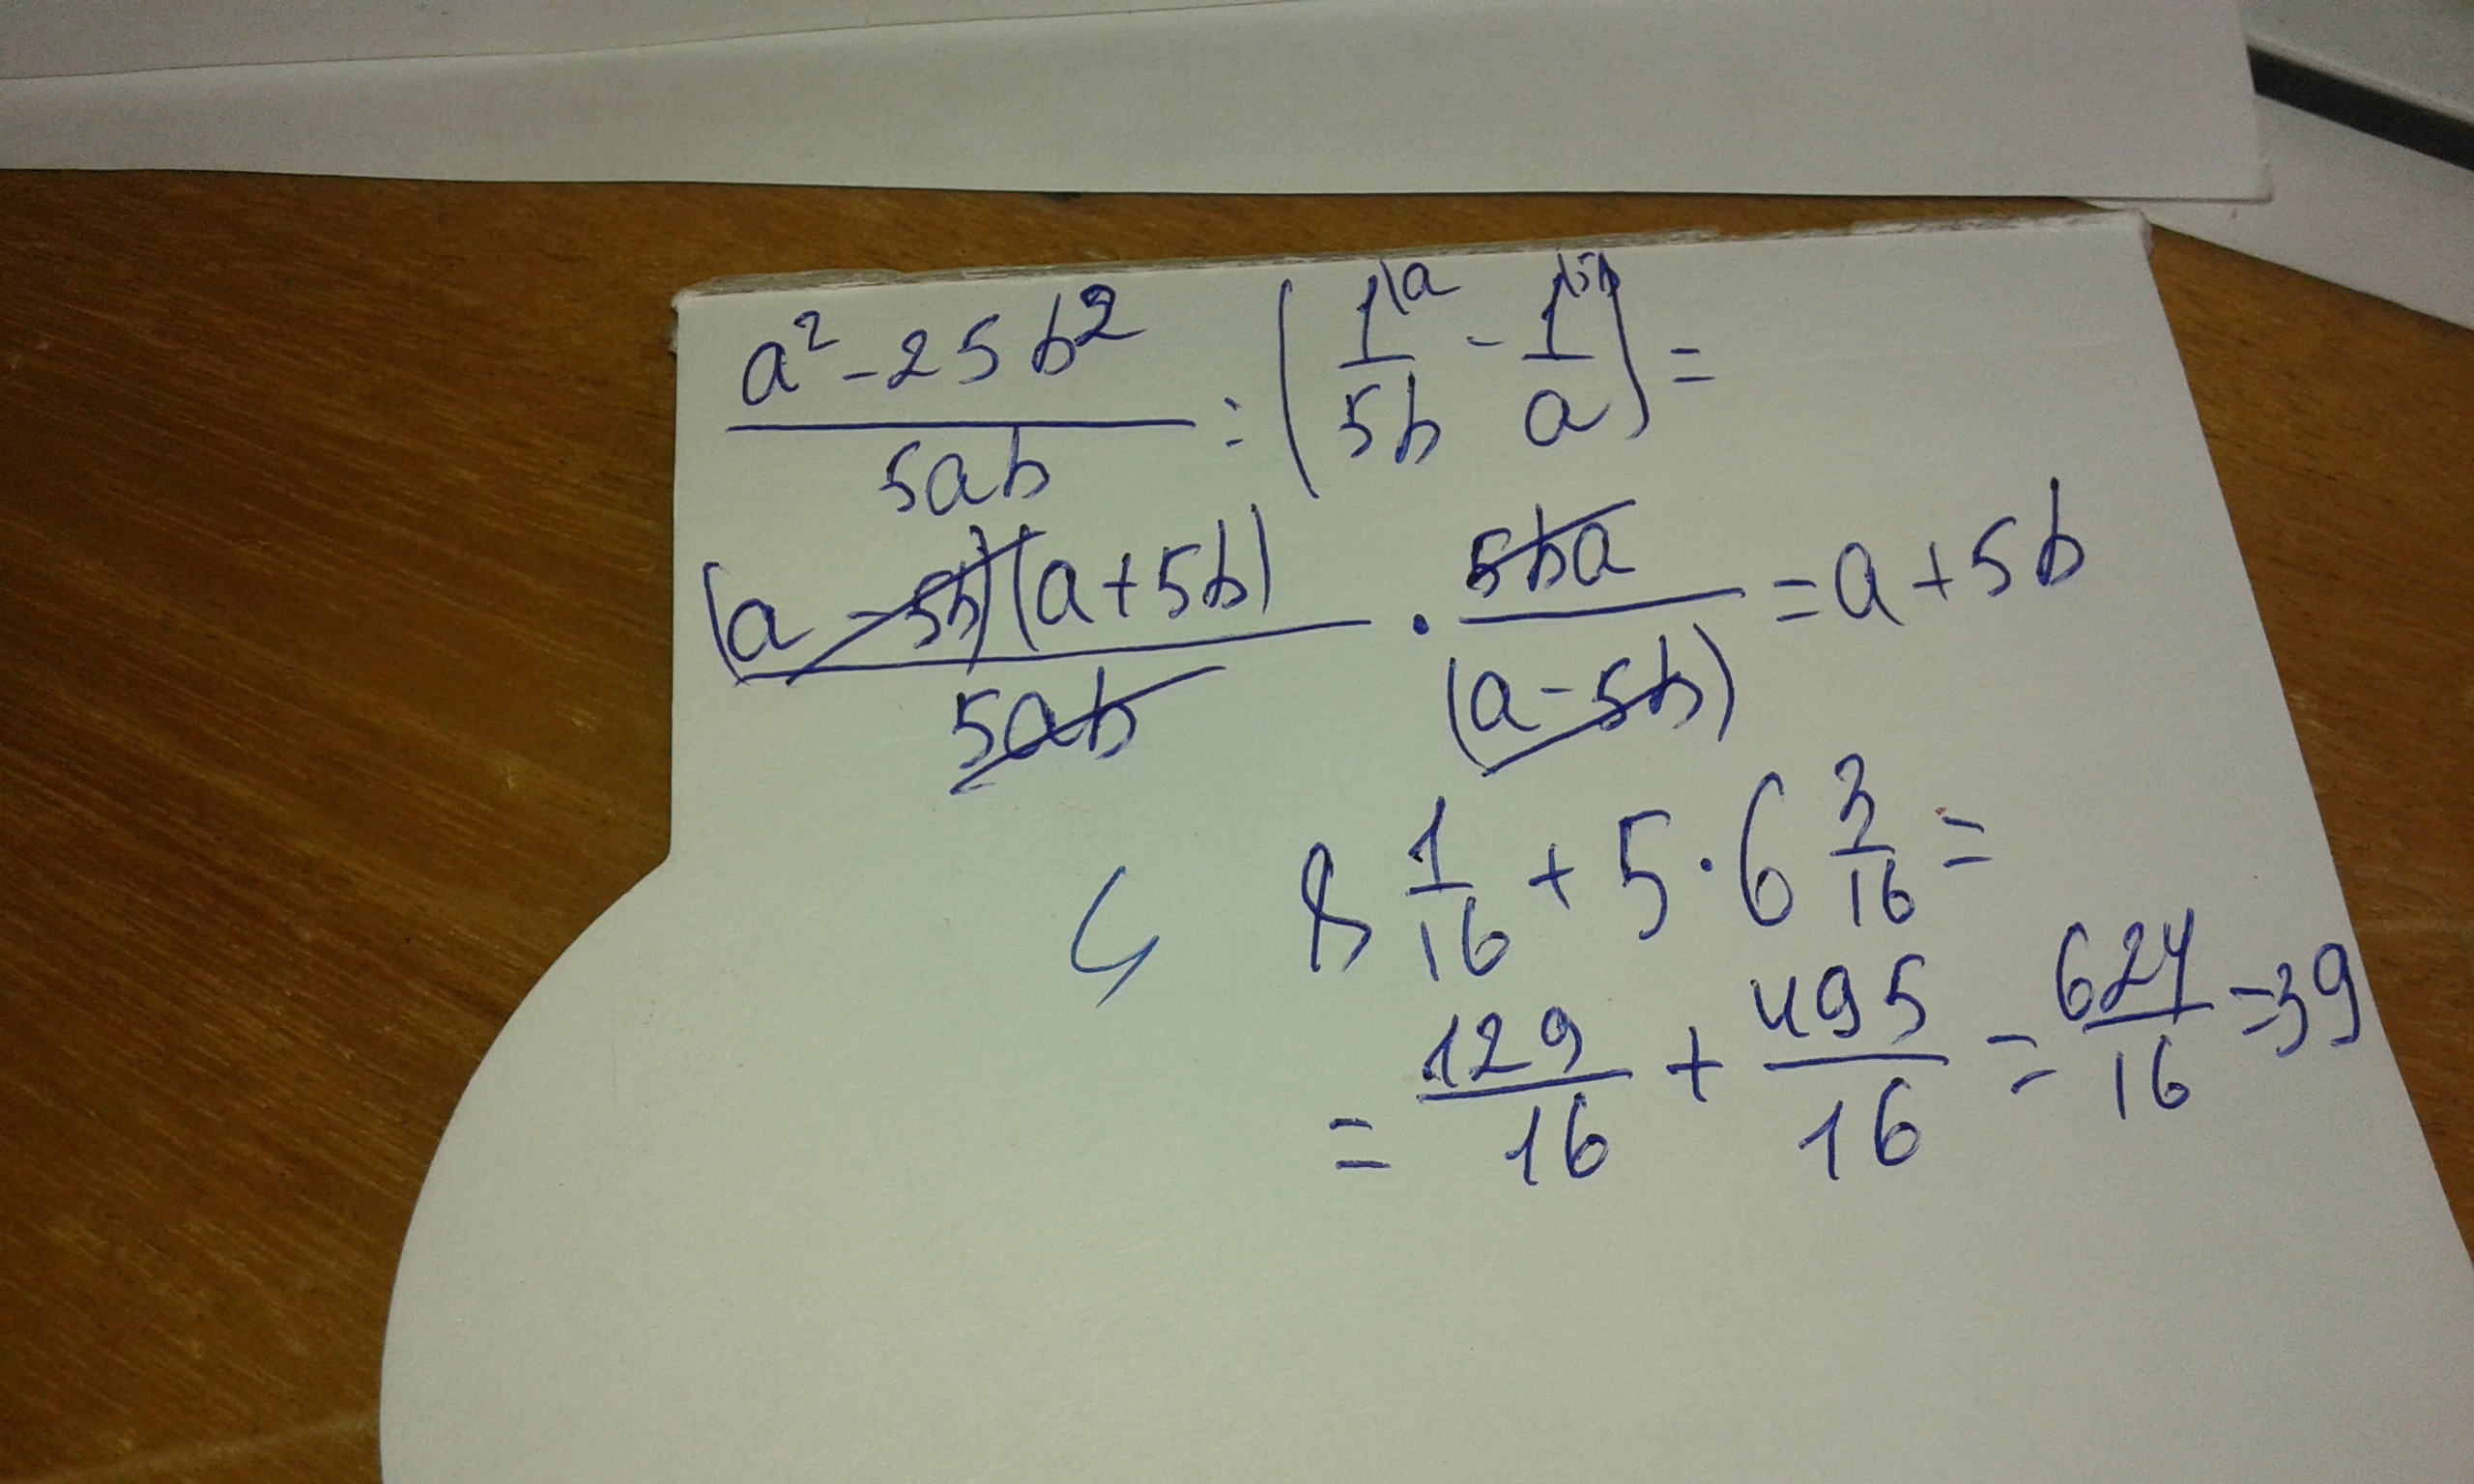 (a² - 25b²)/(5ab) : (1/(5b)\a - 1/a\5b) =
((a - 5b)(a + 5b))/(5ab) · (5ba)/((a - 5b)) = a + 5b
8 1/16 + 5 · 6 3/16 =
= 129/16 + 495/16 = 624/16 = 39